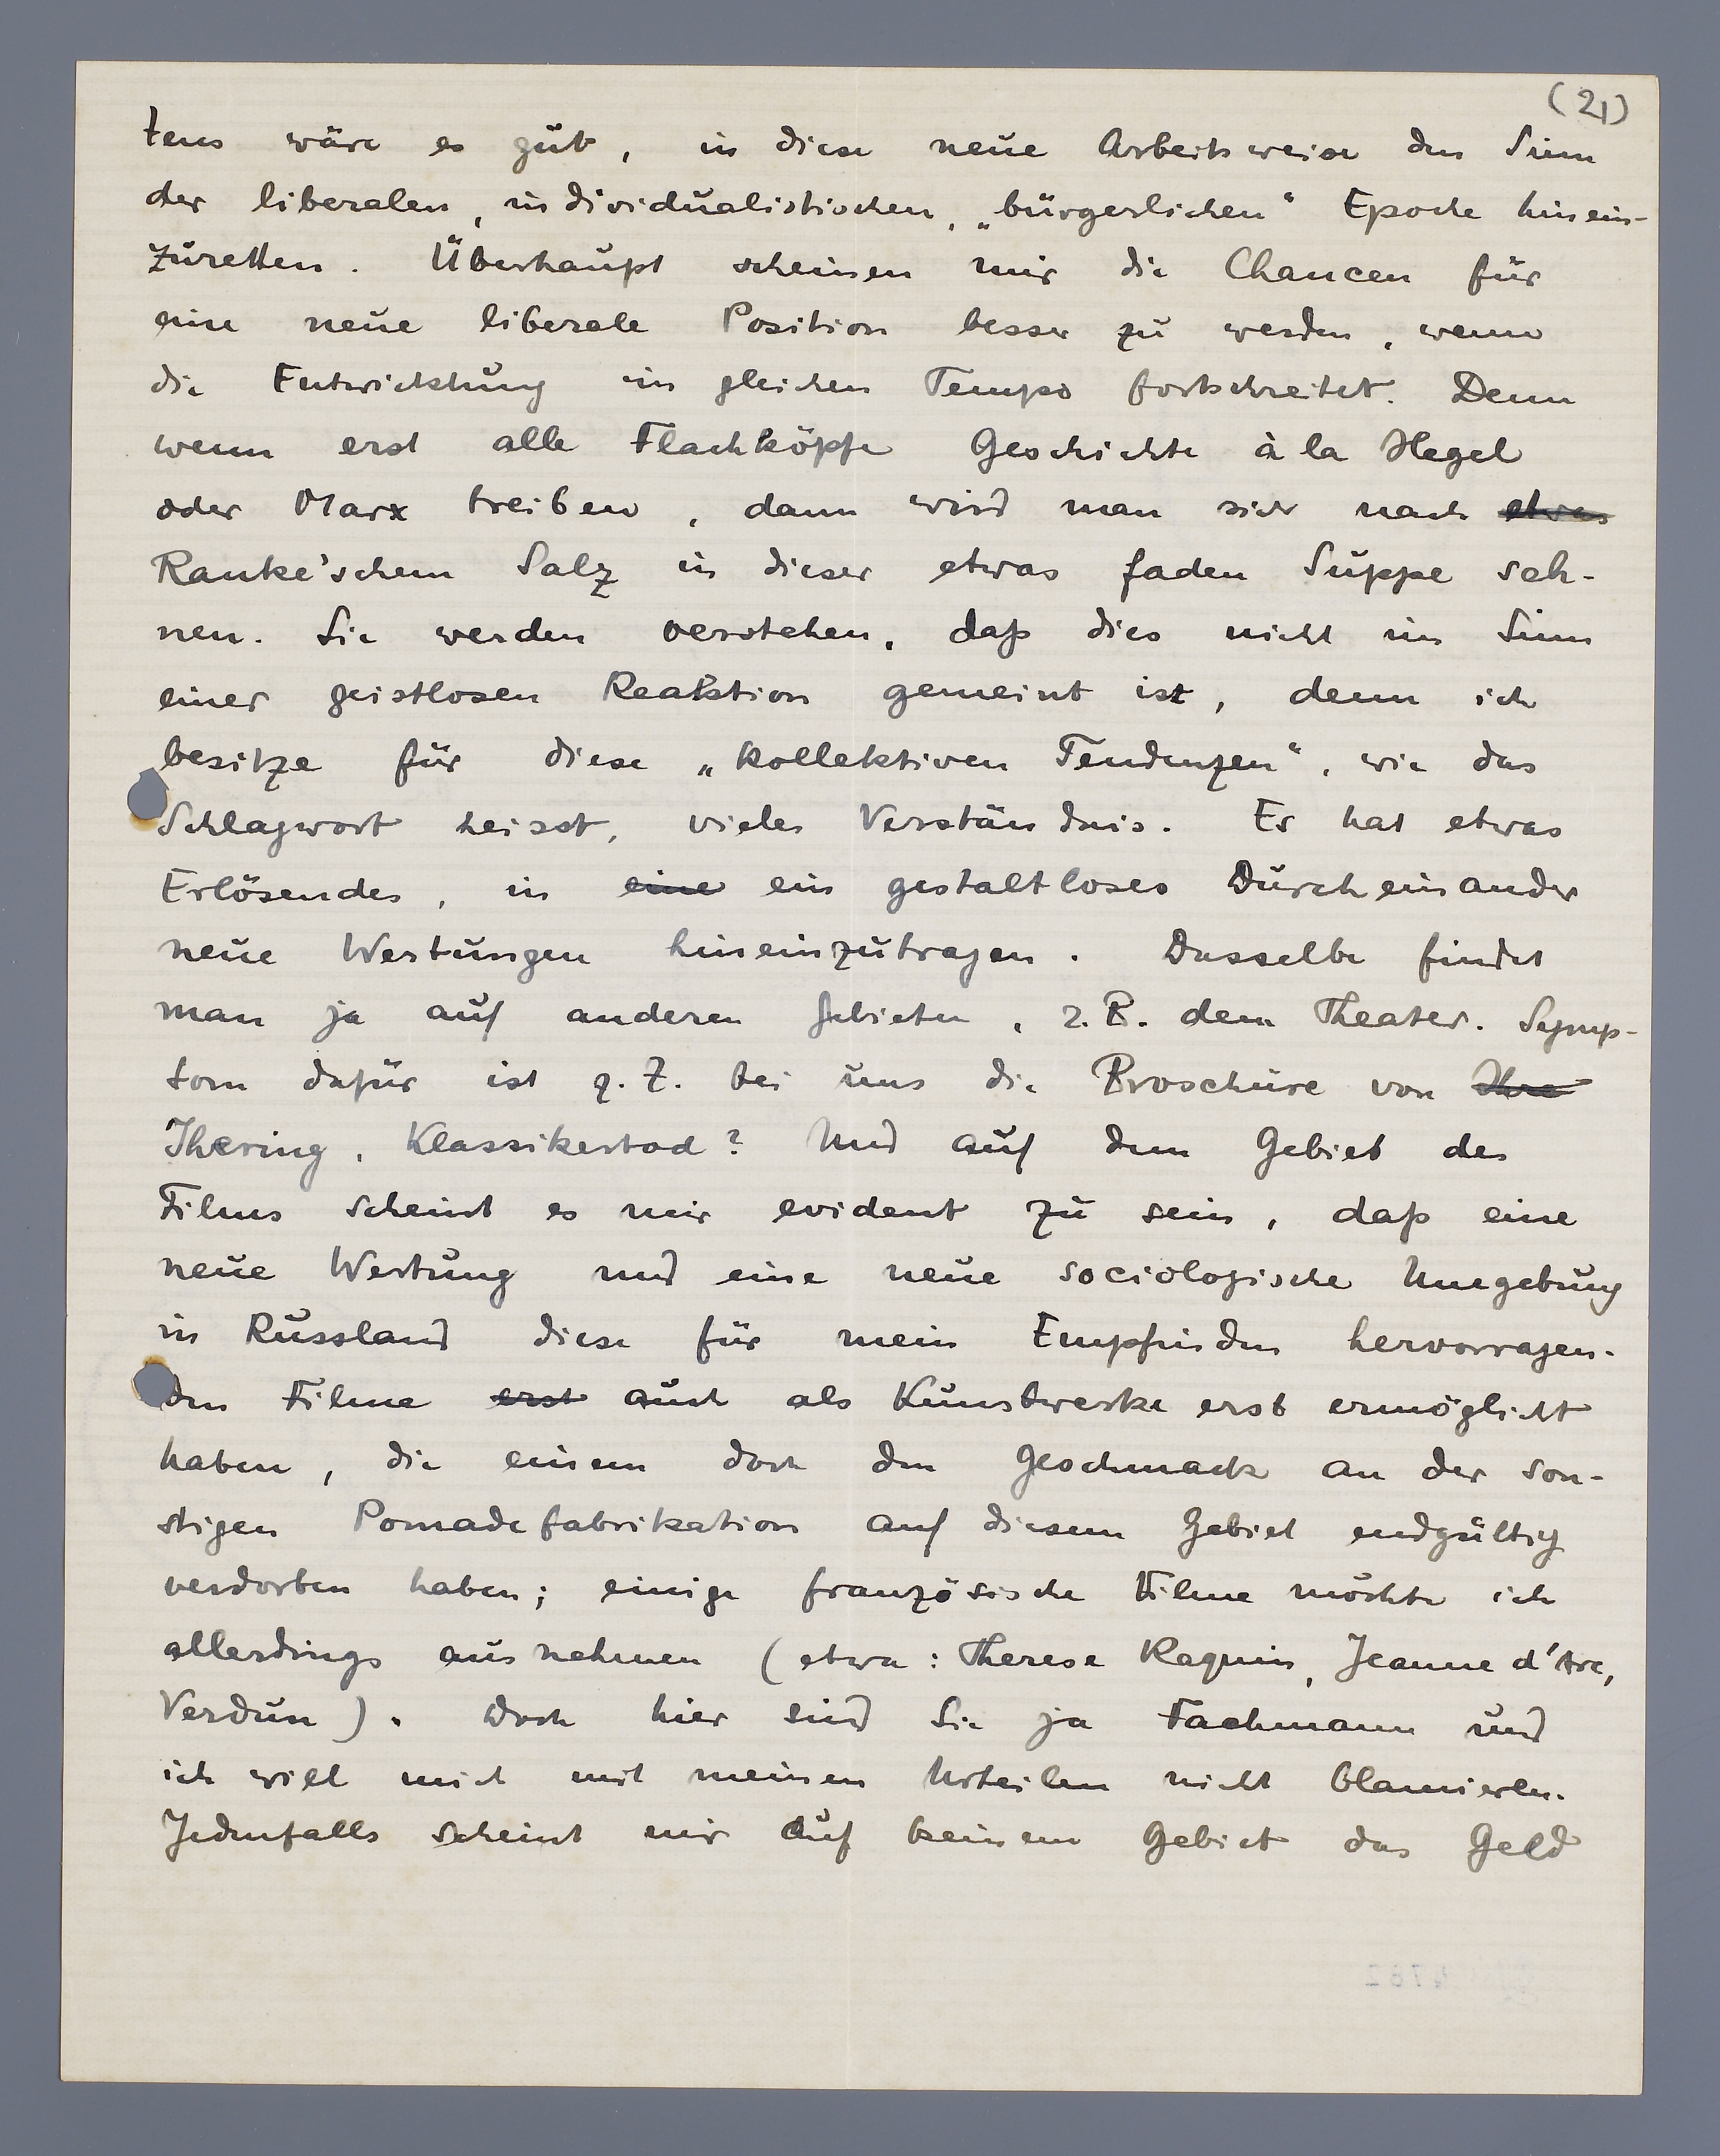 (21)
tens wäre es gut, in diese neue Arbeitsweise den Sinn
der liberalen, individualistischen, „bürgerlichen“ Epoche hinein-
zuretten. Überhaupt scheinen mir die Chancen für
eine neue liberale Position besser zu werden, wenn
die Entwicklung im gleichen Tempo fortschreitet. Denn
wenn erst alle Flachköpfe Geschichte à la Hegel
oder Marx treiben, dann wird man sich nach etwas
Ranke'schem Salz in dieser etwas faden Suppe seh-
nen. Sie werden verstehen, daß dies nicht im Sinn
einer geistlosen Reaktion gemeint ist, denn ich
besitze für diese „kollektiven Tendenzen“, wie das
Schlagwort heisst, vieles Verständnis. Es hat etwas
Erlösendes, in eine ein gestaltloses Durcheinander
neue Wertungen hineinzutragen. Dasselbe findet
man ja auf anderen Gebieten, z.B. dem Theater. Symp-
tom dafür ist z.Z. bei uns die Broschüre von Ihre
Jhering, Klassikertod? Und auf dem Gebiet des
Films scheint es mir evident zu sein, daß eine
neue Wertung und eine neue sociologische Umgebung
in Russland diese für mein Empfinden hervorragen-
den Filme erst auch als Kunstwerke erst ermöglicht
haben, die einem doch den Geschmack an der son-
stigen Pomadefabrikation auf diesem Gebiet endgültig
verdorben haben; einige französische Filme möchte ich
allerdings ausnehmen (etwa: Therese Raquin, Jeanne d'Arc,
Verdun). Doch hier sind Sie ja Fachmann und
ich will mich mit meinen Urteilen nicht blamieren.
Jedenfalls scheint mir auf keinem Gebiet das Geld